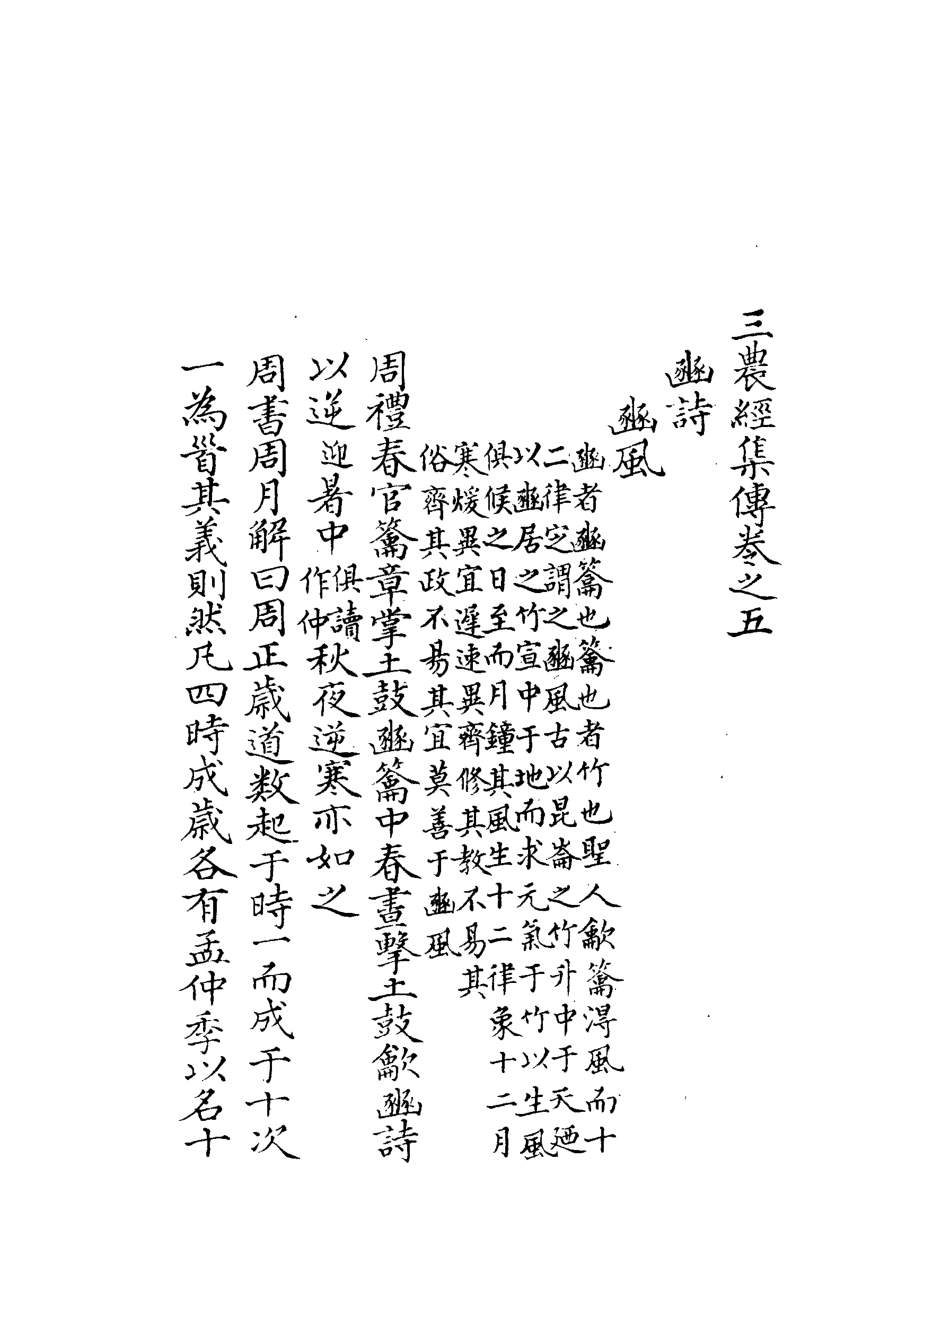 三農經集傳卷之五
豳詩
豳風
豳者豳籥也籥也者竹也聖人龡籥淂風而十
二律定謂之豳風古以昆崙之竹升中于天廼
以豳居之竹宣中于地而求元氣于竹以生風
俱候之日至而月鐘其風生十二律象十二月
寒煖異宜遲速異齊修其教不易其
俗齊其政不易其宜莫善于豳風
周禮春官籥章掌土鼓豳籥中春晝擊土鼓龡豳詩
以逆迎暑中俱讀作仲秋夜逆寒亦如之
周書周月解曰周正歲道数起于時一而成于十次
一為首其義則然凡四時成歲各有孟仲季以名十